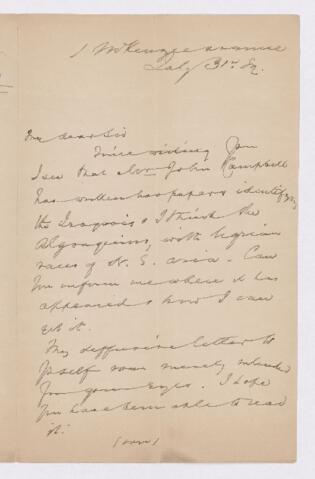 1 McKenzie avenue
July 31st
My dear Sir
Since writing you
I see that Mr John Campbell
has written two papers identifying
the Iroquois & I think the
Algonquins, with
races of N. E. Asia - Can
you inform me where it has
appeared & how I can
get it.
My diffusive letter to
yself was merely intended
for your eyes. I hope
you have been able to read
it.
(over)